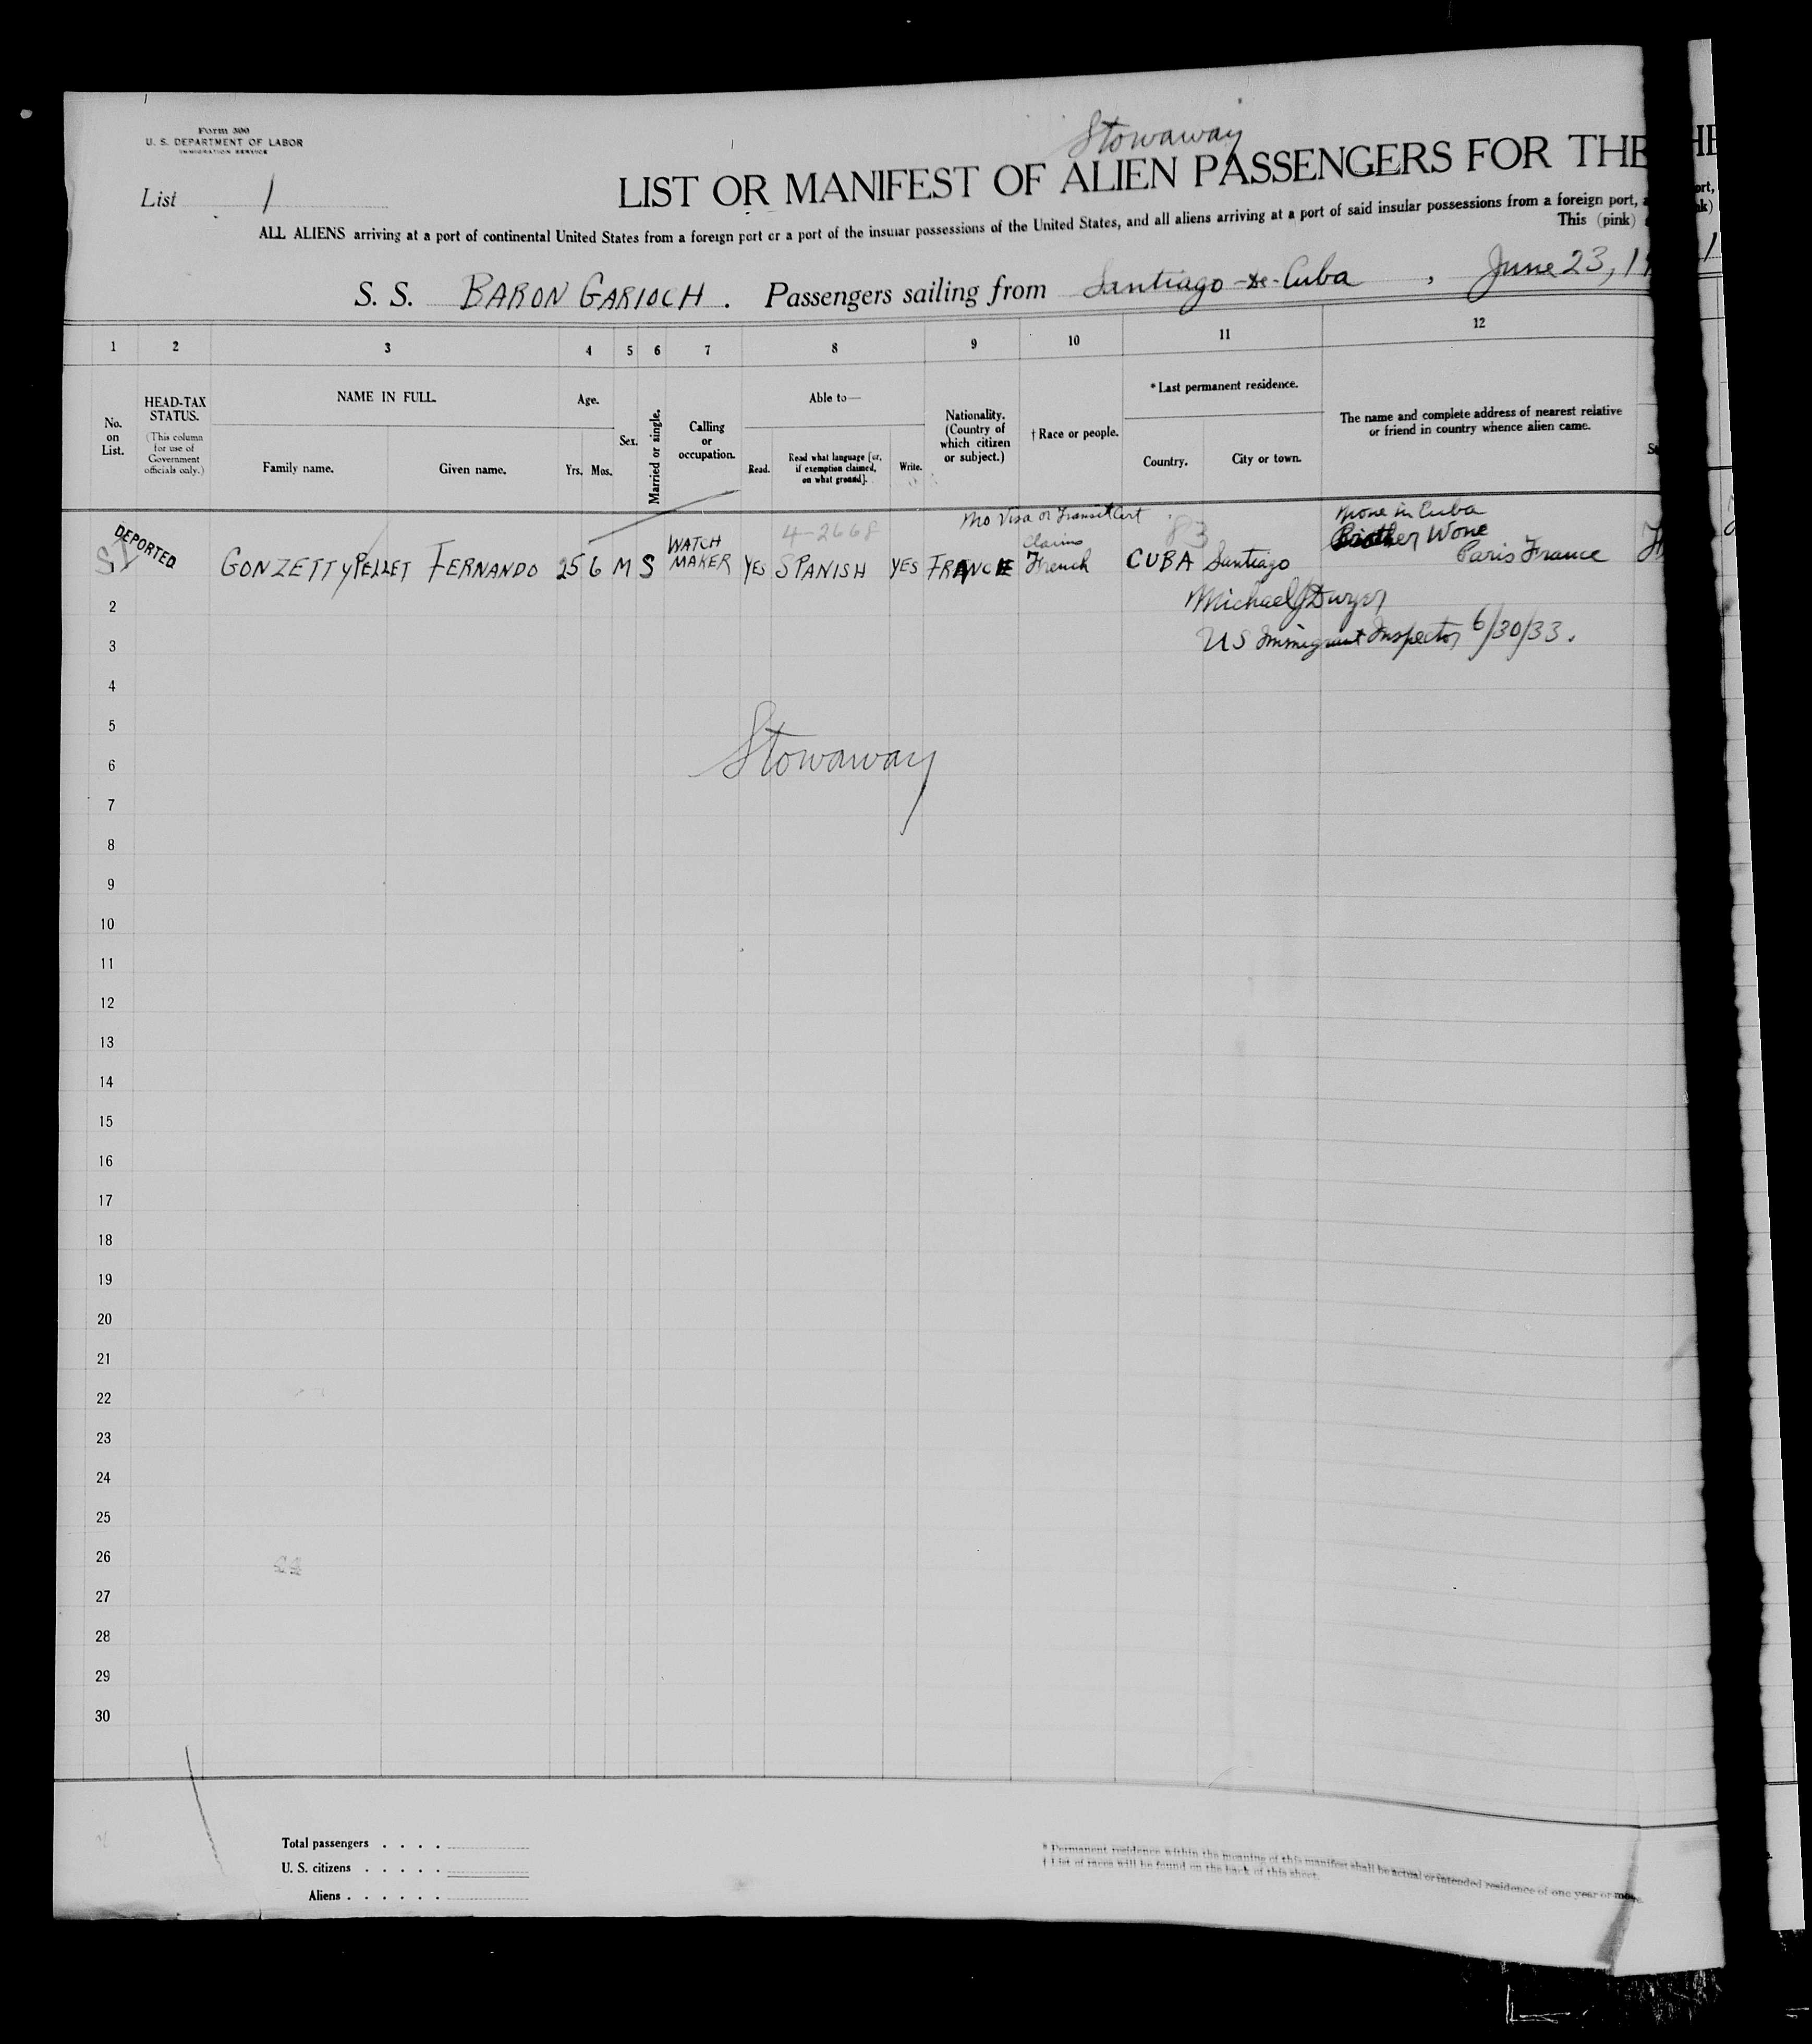 Form 300
U. S. DEPARTMENT OF LABOR
IMMIGRATION SERVICE
Stowaway
List 1
LIST OR MANIFEST OF ALIEN PASSENGERS FOR THE
ALL ALIENS arriving at a port of continental United States from a foreign port or a port of the insular possessions of the United States, and all aliens arriving at a port of said insular possessions from a foreign port,
This (pink)
S. S. BARON GARIOCH . Passengers sailing from Santiago-de-Cuba , June 23, 19
1 2 3 4 5 6 7 8 9 10 11 12
No. on List.
HEAD-TAX STATUS.
(This column for use of Government officials only.)
NAME IN FULL.
Family name. Given name.
Age.
Yrs. Mos.
Sex.
Married or single.
Calling or occupation.
Able to—
Read. Read what language [or, if exemption claimed, on what ground]. Write.
Nationality. (Country of which citizen or subject.)
† Race or people.
* Last permanent residence.
Country. City or town.
The name and complete address of nearest relative or friend in country whence alien came.
No Visa or Transit Cert
4-2668
83
None in Cuba
DEPORTED
SI
GONZETTY PELLET FERNANDO 25 6 M S WATCH MAKER YES SPANISH YES FRANCE Claims French CUBA Santiago Brother Paris France
Michael J Dwyer
US Immigrant Inspector 6/30/33.
2
3
4
5
Stowaway
6
7
8
9
10
11
12
13
14
15
16
17
18
19
20
21
22
23
24
25
26
27
28
29
30
Total passengers . . . .
U. S. citizens . . . . .
Aliens . . . . . .
* Permanent residence within the meaning of this manifest shall be actual or intended residence of one year or more.
† List of races will be found on the back of this sheet.